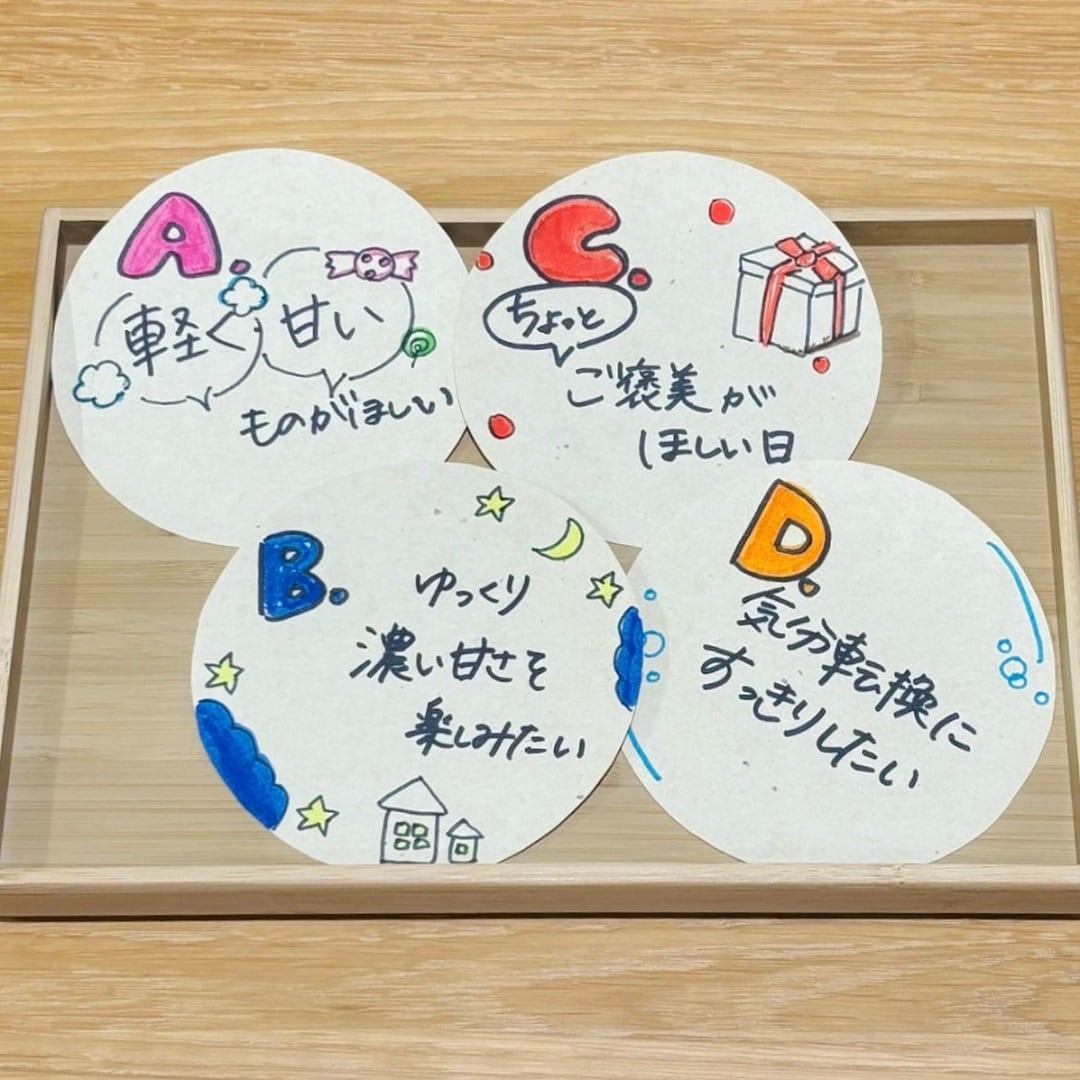 A.
軽く 甘い
ものがほしい
B.
ゆっくり
濃い甘さを
楽しみたい
C.
ちょっと
ご褒美が
ほしい日
D.
気分転換に
すっきりしたい